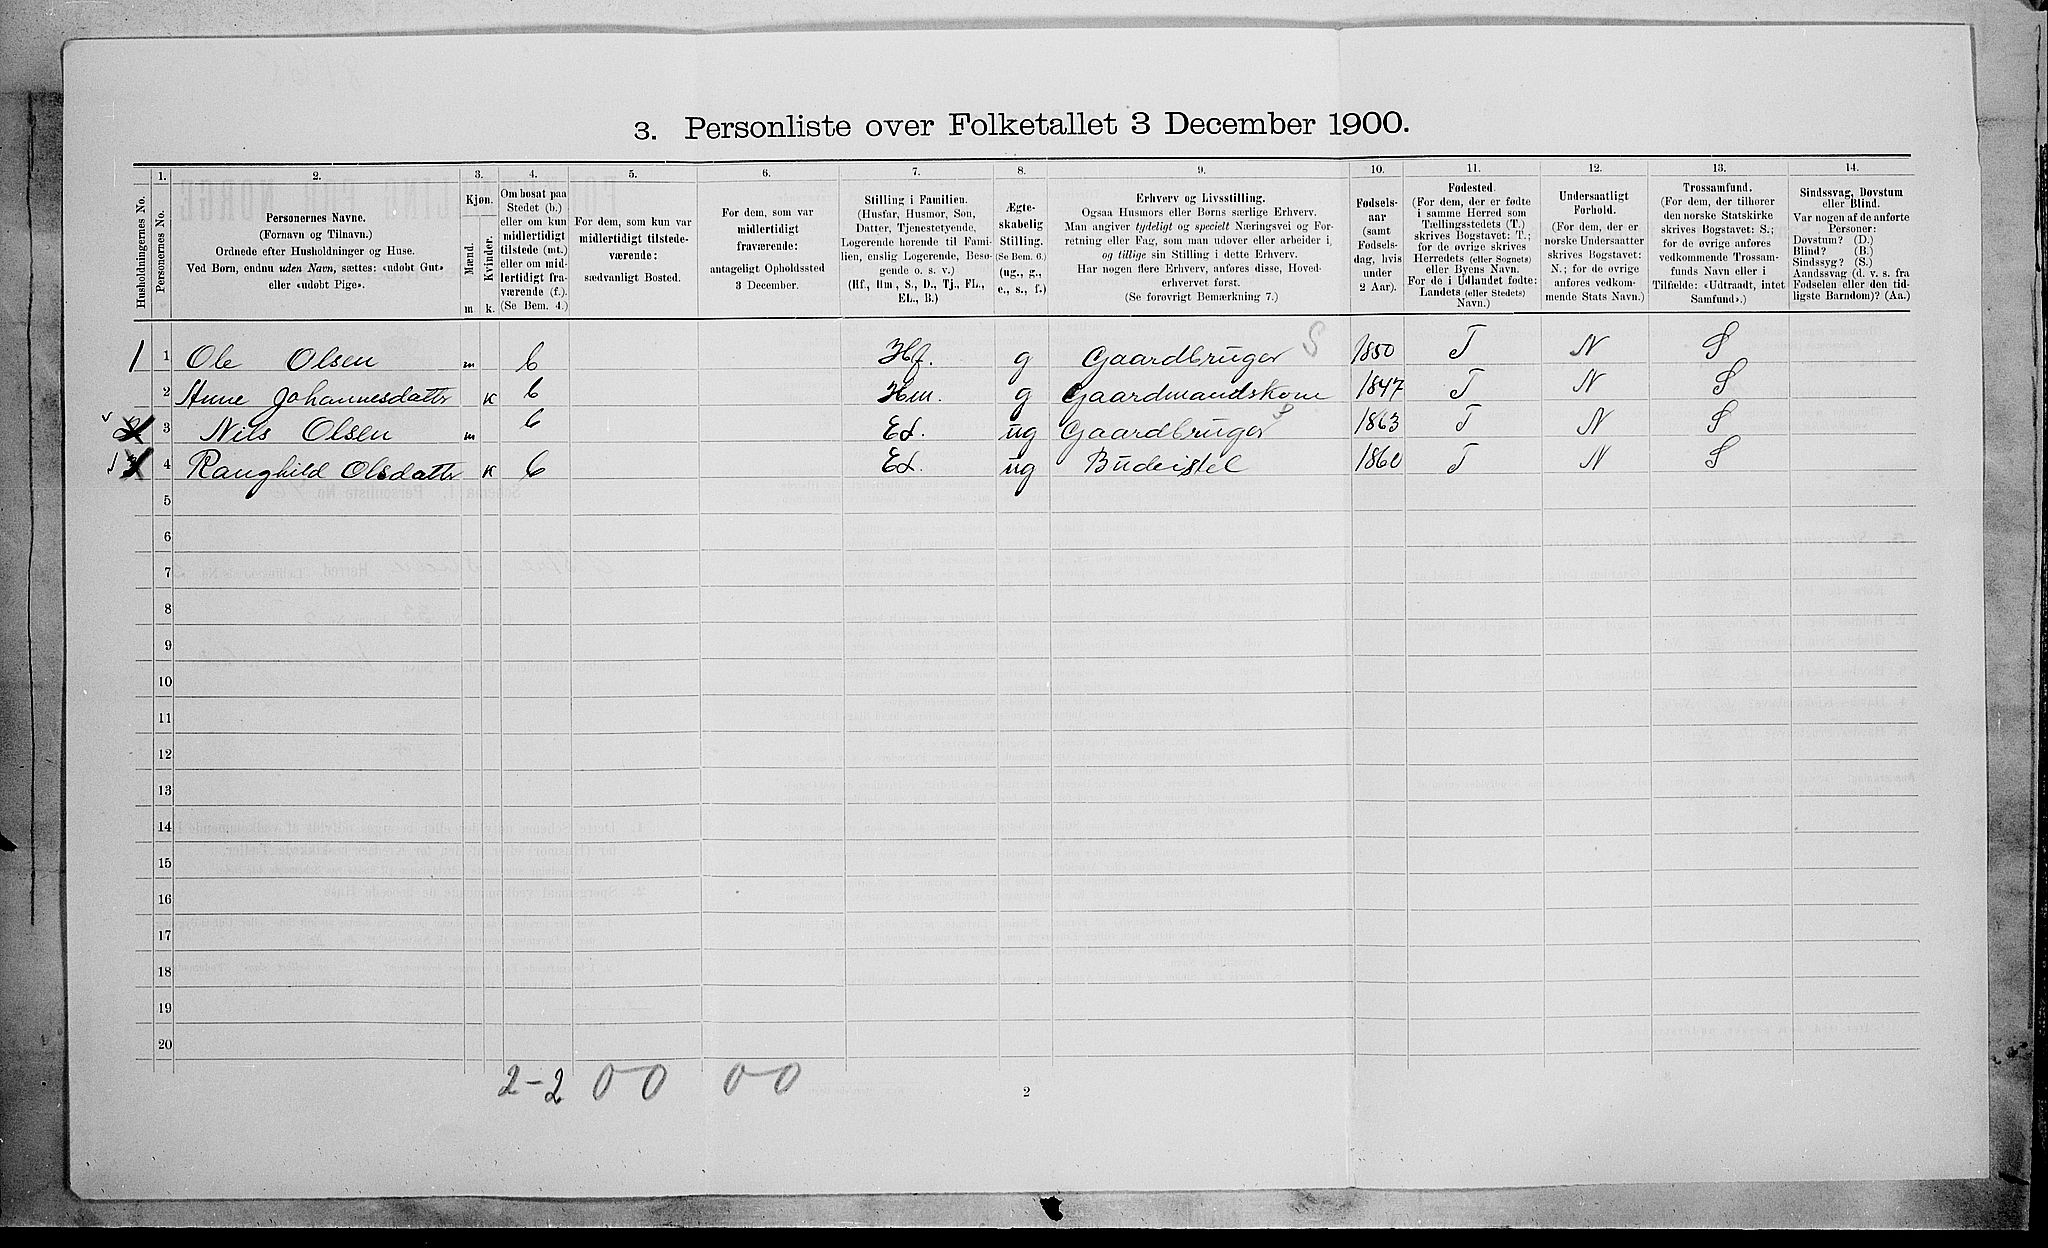 3. Personliste over Folketallet 3 December 1900.
1. 2. 3. 4. 5. 6. 7. 8. 9. 10. 11. 12. 13. 14.
Husholdningernes No.
Personernes No.
Personernes Navne.
(Fornavn og Tilnavn.)
Ordnede efter Husholdninger og Huse.
Ved Børn, endnu uden Navn, sættes: «udøbt Gut»
eller «udøbt Pige».
Kjøn.
Mænd.
Kvinder.
m. k.
Om bosat paa
Stedet (b.)
eller om kun
midlertidigt
tilstede (mt.)
eller om mid-
lertidigt fra-
værende (f.)
(Se Bem. 4.)
For dem, som kun var
midlertidigt tilstede-
værende:
sædvanligt Bosted.
For dem, som var
midlertidigt
fraværende:
antageligt Opholdssted
3 December.
Stilling i Familien.
(Husfar, Husmor, Søn,
Datter, Tjenestetyende,
Logerende hørende til Fami-
lien, enslig Logerende, Besø-
gende o. s. v.)
(Hf., Hm., S., D., Tj., FL.,
EL., B.)
Ægte-
skabelig
Stilling.
(Se Bem. 6.)
(ug., g.,
e., s., f.)
Erhverv og Livsstilling.
Ogsaa Husmors eller Børns særlige Erhverv.
Man angiver tydeligt og specielt Næringsvei og For-
retning eller Fag, som man udøver eller arbeider i,
og tillige sin Stilling i dette Erhverv.
Har nogen flere Erhverv, anføres disse, Hoved-
erhvervet først.
(Se forøvrigt Bemærkning 7.)
Fødsels-
aar
(samt
Fødsels-
dag, hvis
under
2 Aar).
Fødested.
(For dem, der er fødte
i samme Herred som
Tællingsstedets (T.)
skrives Bogstavet: T.;
for de øvrige skrives
Herredets (eller Sognets)
eller Byens Navn.
For de i Udlandet fødte:
Landets (eller Stedets)
Navn.)
Undersaatligt
Forhold.
(For dem, der er
norske Undersaatter
skrives Bogstavet:
N.; for de øvrige
anføres vedkom-
mende Stats Navn.)
Trossamfund.
(For dem, der tilhører
den norske Statskirke
skrives Bogstavet: S.;
for de øvrige anføres
vedkommende Trossam-
funds Navn eller i
Tilfælde: «Udtraadt, intet
Samfund».)
Sindssvag, Døvstum
eller Blind.
Var nogen af de anførte
Personer:
Døvstum? (D.)
Blind? (B.)
Sindssyg? (S.)
Aandssvag (d. v. s. fra
Fødselen eller den tid-
ligste Barndom)? (Aa.)
1 1 Ole Olsen m b Hf. g Gaardbruger S 1850 T N S
2 Anne Johannesdatter k b Hm. g Gaardmandskone 1847 T N S
3 Nils Olsen m b El. ug Gaardbruger S 1863 T N S
4 Ranghild Olsdatter k b El. ug Budeistel 1860 T N S
5
6
7
8
9
10
11
12
13
14
15
16
17
18
19
20
2-2 0 0 0 0
2